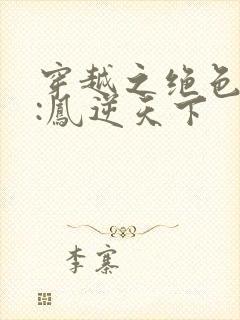 穿越之绝色
:凰逆天下
李寨